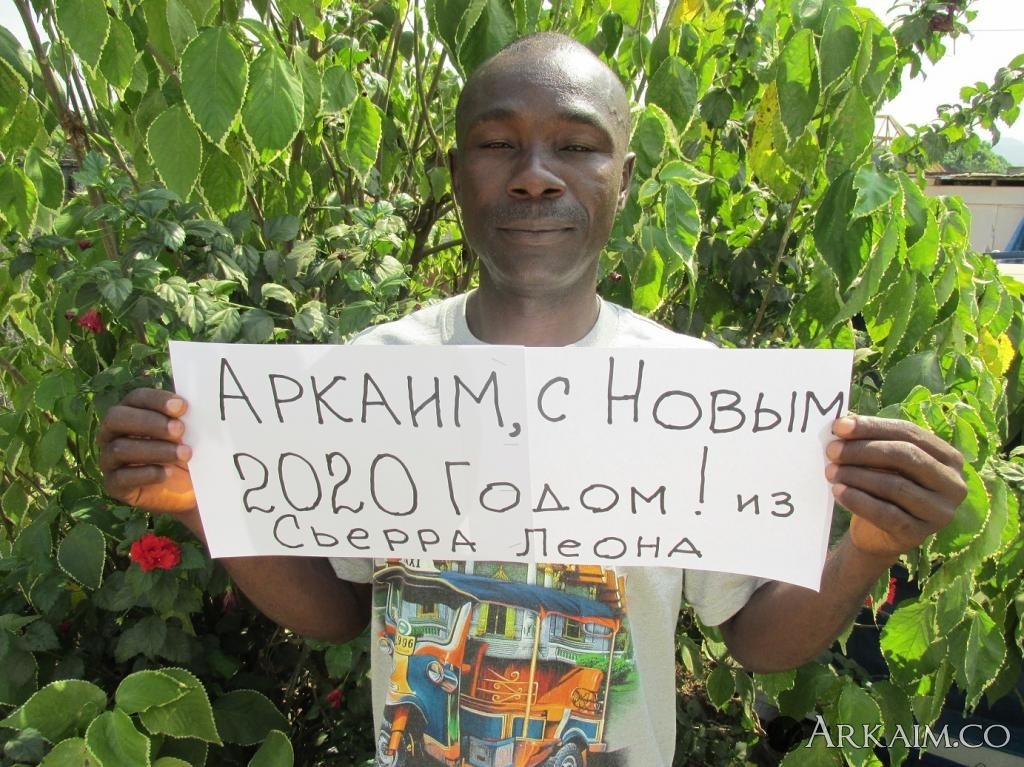 Аркаим, с Новым
2020 Годом! из
Сьерра Леона
TAXI
996
Arkaim.co